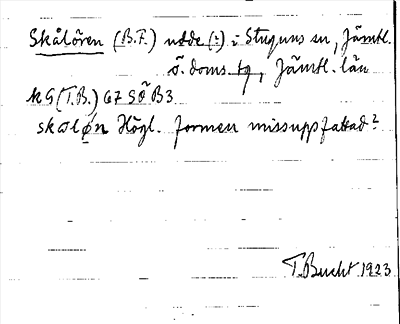 Skålören (B.F.) udde (:) i Stuguns sn, Jämtl.
ö. doms. tg, Jämtl. län
kG (T.B.) 67 SÖ B3
skɑlø̜n Högl. formen missuppfattad?
T. Bucht 1923